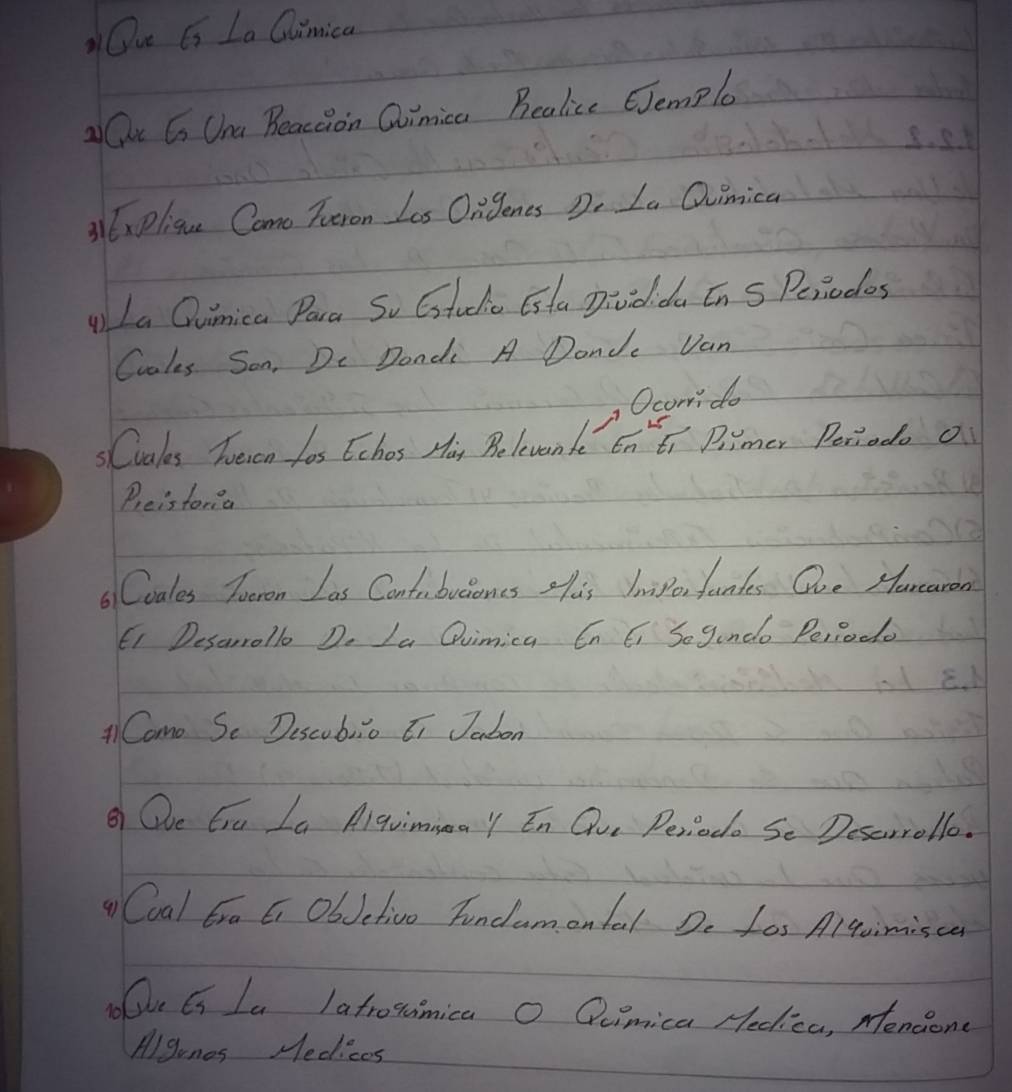 1) Que Es La Química
2) Que Es Una Reacción Química Realice EJemPlo
3) ExPlique Como Fueron Los Orígenes De La Química
4) La Química Para Su Estudio Esta Dividida En 5 Periodos
Cuales Son, De Donde A Donde Van
Ocorrido
5) Cuales Fueron Los Echos Más Relevante En El Primer Periodo O
Preistoria
6) Cuales Fueron Las Contribuciones Más ImPortantes Que Marcaron
El Desarrollo De La Química En El Segundo Periodo
7) Como Se Descubrio El Jabon
8) Que Era La Alquimia Y En Que Periodo Se Desarrollo.
9) Cual Era El ObJetivo Fundamental De Los Alquimisca
10) Que Es La Iatroquímica O Química Medica, Mencione
Algunos Medicos